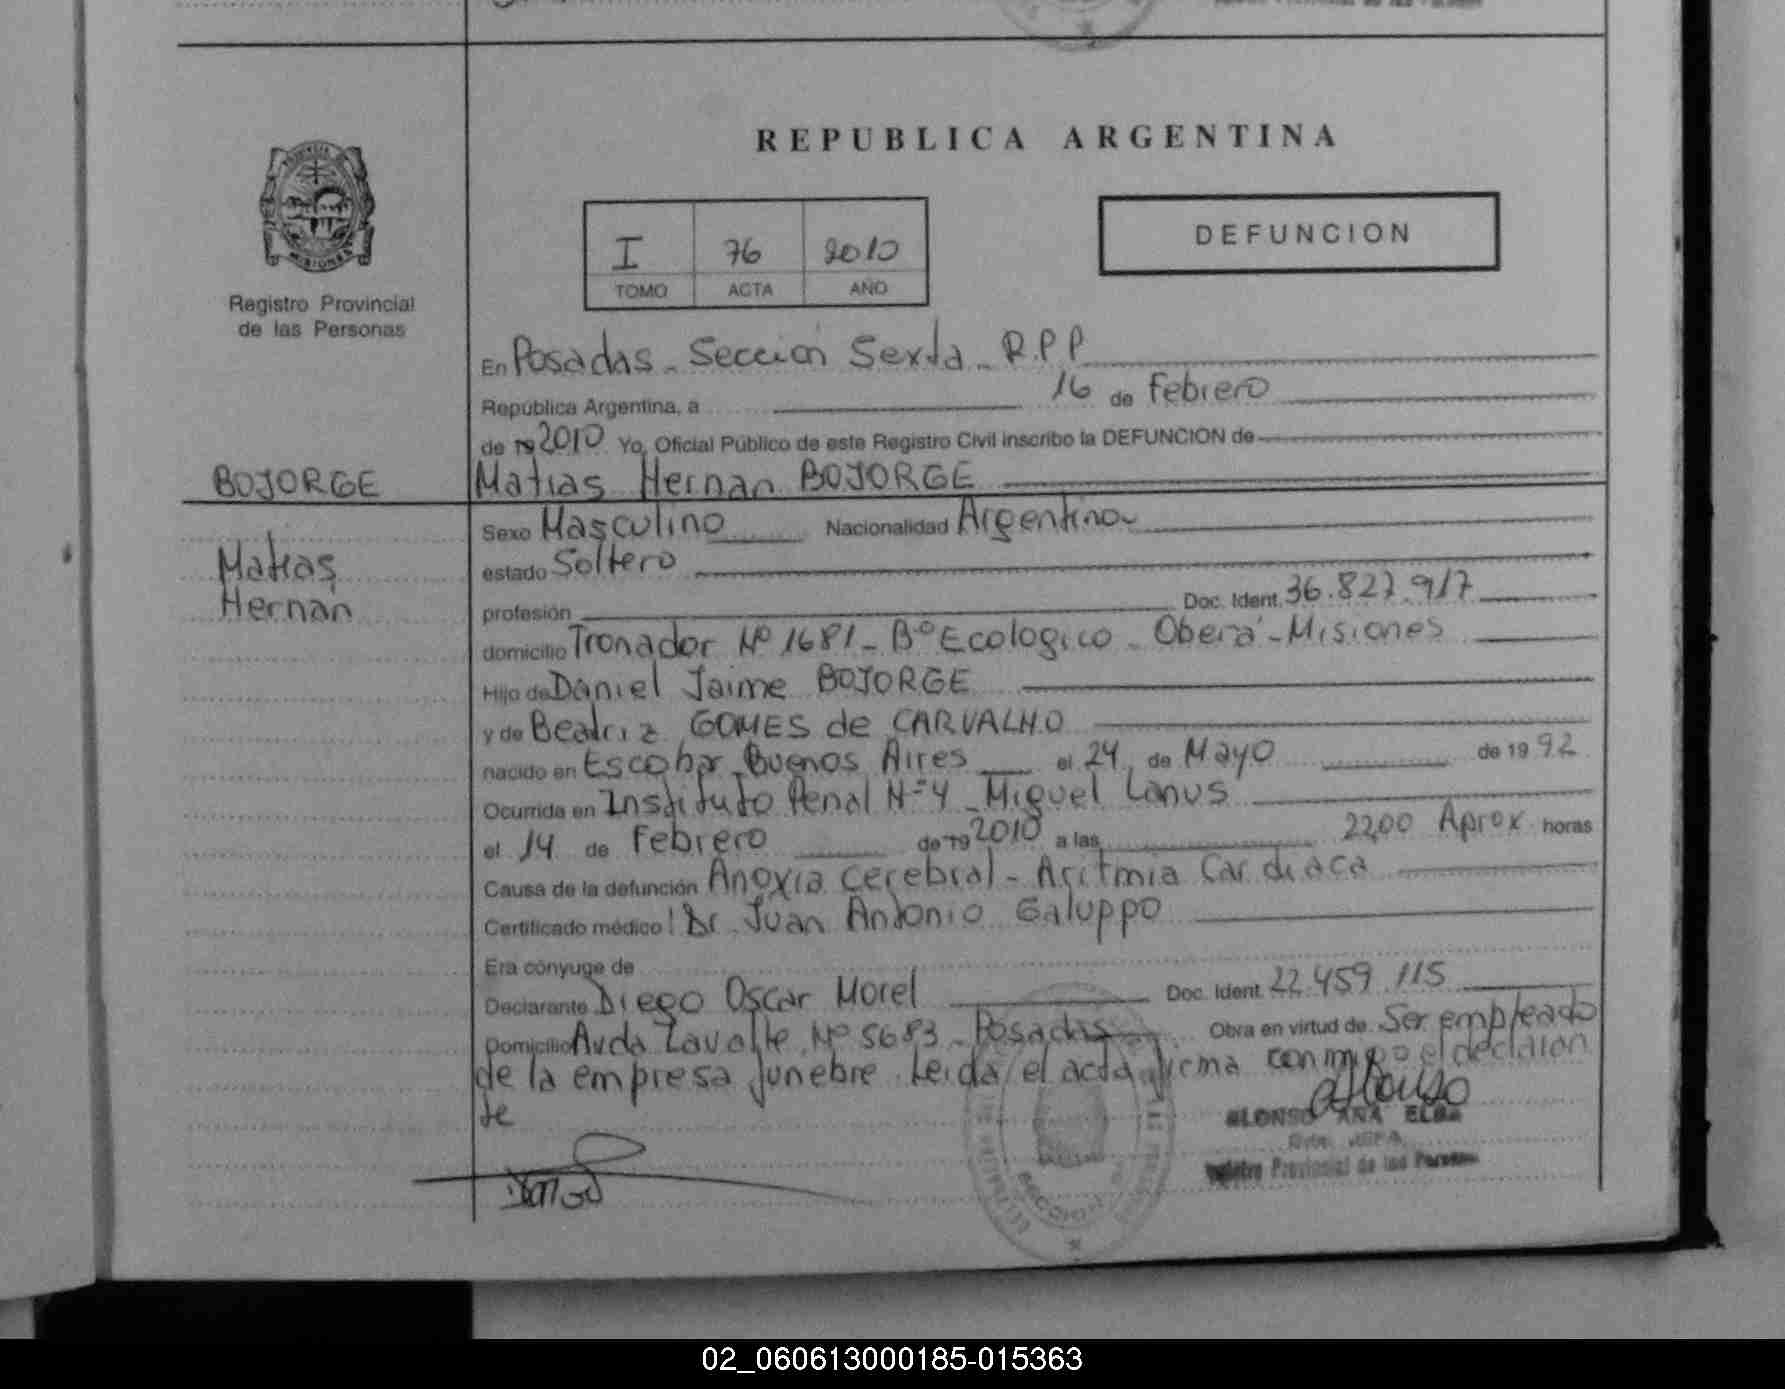 REPUBLICA ARGENTINA
I 76 2010
TOMO ACTA AÑO
DEFUNCION
MISIONES
Registro Provincial
de las Personas
En Posadas - Sección Sexta - R.P.P
República Argentina, a 16 de Febrero
de 19 2010 Yo, Oficial Público de este Registro Civil inscribo la DEFUNCION de
BOJORGE
Matias Hernan BOJORGE
Matias
Hernan
Sexo Masculino Nacionalidad Argentina
estado Soltero
profesión Doc. Ident. 36.827.917
domicilio Tronador Nº 1681 - Bº Ecologico - Oberá - Misiones
Hijo de Daniel Jaime BOJORGE
y de Beatriz GOMES de CARVALHO
nacido en Escobar Buenos Aires el 24 de Mayo de 1992
Ocurrida en Instituto Penal Nº 4 - Miguel Lanus
el 14 de Febrero de 19 2010 a las 22,00 Aprox horas
Causa de la defunción Anoxia Cerebral - Aritmia Cardiaca
Certificado médico Dr. Juan Antonio Galuppo
Era cónyuge de
Declarante Diego Oscar Morel Doc. Ident. 22.459.115
Domicilio Avda Lavalle Nº 5683 - Posadas Obra en virtud de Ser empleado
de la empresa funebre. Leida el acta firma conmigo el declaran
te
ALONSO ANA ELBA
Registro Provincial de las Personas
02_060613000185-015363